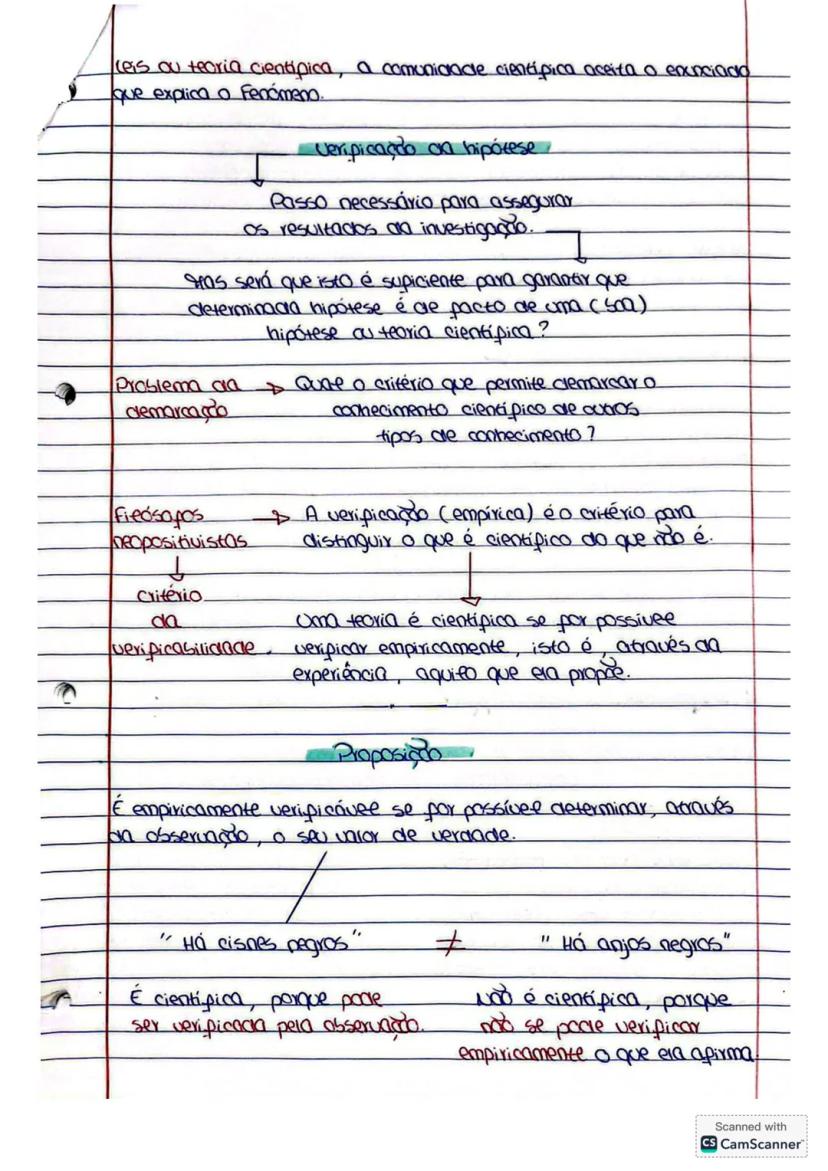 Leis ou teoria científica, a comunidade científica aceita o enunciado
que explica o Fenómeno.
Verificação da hipótese
Passo necessário para assegurar
os resultados da investigação.
Mas será que isto é suficiente para garantir que
determinada hipótese é de facto de uma (boa)
hipótese ou teoria científica?
Problema da → Qual é o critério que permite demarcar o
demarcação conhecimento científico de outros
tipos de conhecimento?
Filósofos → A verificação (empírica) é o critério para
neopositivistas distinguir o que é científico do que não é.
critério
da Uma teoria é científica se for possível
verificabilidade. verificar empiricamente, isto é, através da
experiência, aquilo que ela propõe.
Proposição
É empiricamente verificável se for possível determinar, através
da observação, o seu valor de verdade.
"Há cisnes negros" ≠ "Há anjos negros"
É científica, porque pode Não é científica, porque
ser verificada pela observação. não se pode verificar
empiricamente o que ela afirma.
Scanned with
CS CamScanner